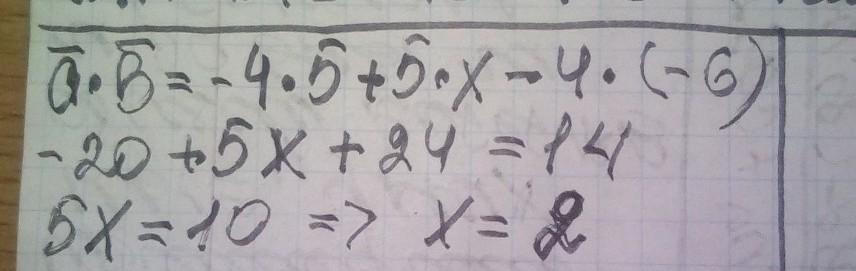 a̅·b̅=-4·5+5·x-4·(-6)
-20+5x+24=14
5x=10 => x=2